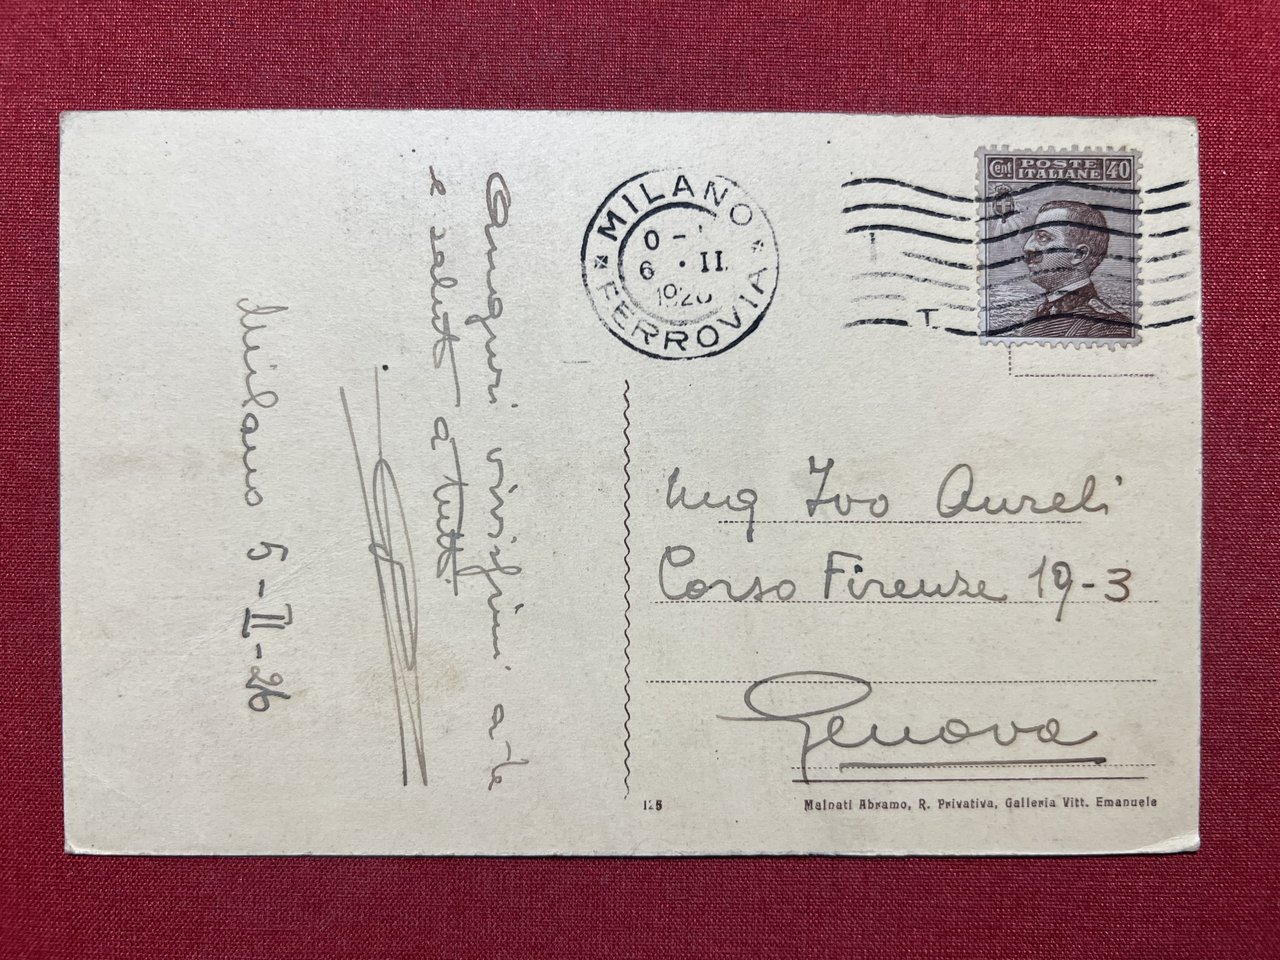 Auguri vivissimi a te
e saluti a tutti.
Milano 5-II-26
MILANO
FERROVIA
6 · II.
Cent POSTE ITALIANE 40
Ing Ivo Aureli
Corso Firenze 19-3
Genova
125
Malnati Abramo, R. Privativa, Galleria Vitt. Emanuele